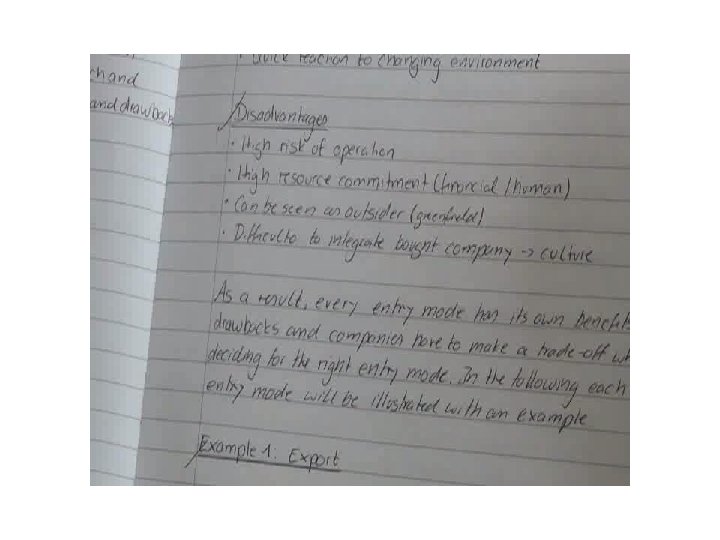 hand
and drawback
· Quick reaction to changing environment
Disadvantages
· High risk of operation
· High resource commitment (financial / human)
· Can be seen as outsider (greenfield)
· Difficult to integrate bought company -> culture
As a result, every entry mode has its own benefits
drawbacks and companies have to make a trade-off wh
deciding for the right entry mode. In the following each
entry mode will be illustrated with an example
Example 1: Export